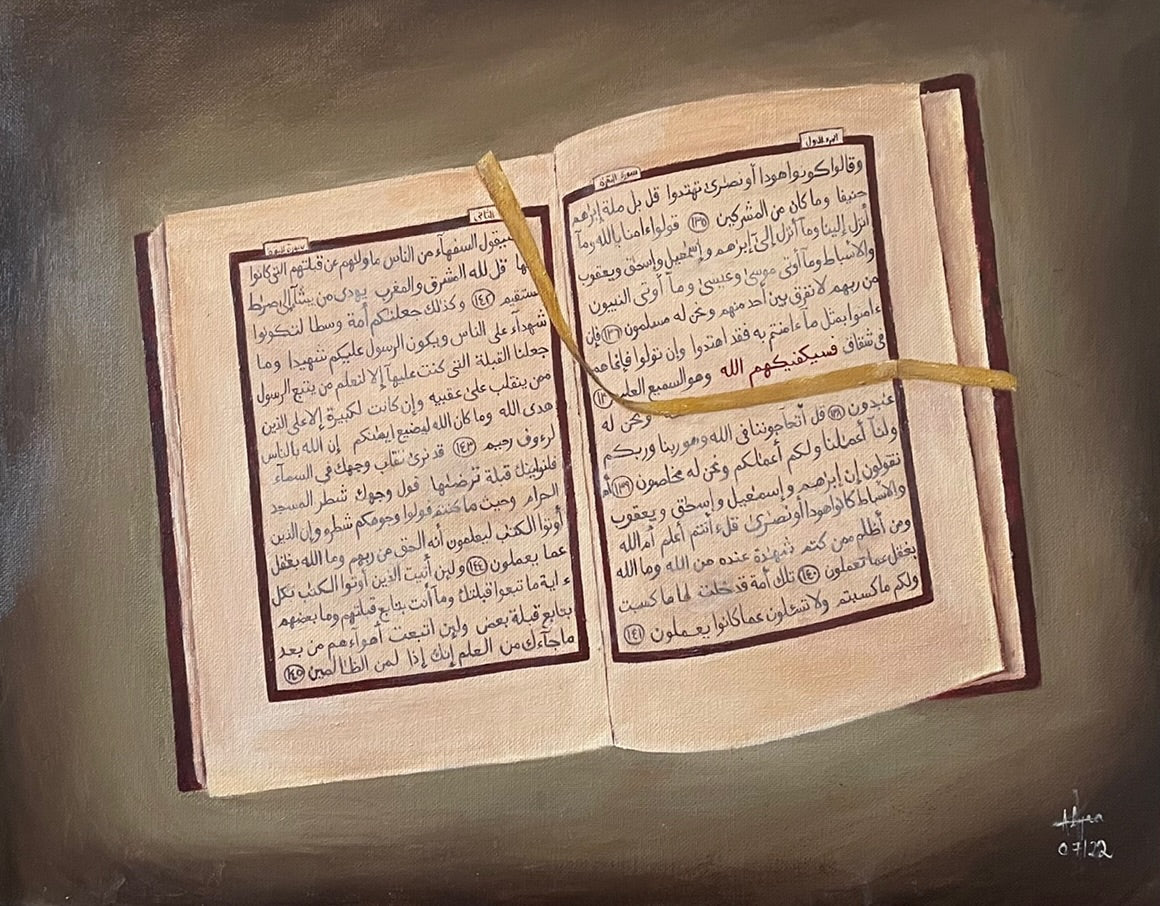 الجزء الاول
سورة البقرة
وقالوا كونوا هودا أو نصرى تهتدوا قل بل ملة إبرهم
حنيفا وما كان من المشركين ١٣٥ قولوا ءامنا بالله وما
أنزل إلينا وما أنزل إلى إبرهم وإسمعيل وإسحق ويعقوب
والأسباط وما أوتى موسى وعيسى وما أوتى النبيون
من ربهم لا نفرق بين أحد منهم ونحن له مسلمون ١٣٦ فإن
ءامنوا بمثل ما ءامنتم به فقد اهتدوا وإن تولوا فإنما هم
فى شقاق فسيكفيكهم الله وهو السميع العليم
ونحن له
عبدون ١٣٨ قل أتحاجوننا فى الله وهو ربنا وربكم
ولنا أعملنا ولكم أعملكم ونحن له مخلصون ١٣٩ أم
تقولون إن إبرهم وإسمعيل وإسحق ويعقوب
والأسباط كانوا هودا أو نصرى قل ءأنتم أعلم أم الله
ومن أظلم ممن كتم شهدة عنده من الله وما الله
بغفل عما تعملون ١٤٠ تلك أمة قد خلت لها ما كسبت
ولكم ما كسبتم ولا تسئلون عما كانوا يعملون ١٤١
الثانى
سورة البقرة
سيقول السفهاء من الناس ما ولىهم عن قبلتهم التى كانوا
قل لله المشرق والمغرب يهدى من يشاء إلى صرط
مستقيم ١٤٢ وكذلك جعلنكم أمة وسطا لتكونوا
شهداء على الناس ويكون الرسول عليكم شهيدا وما
جعلنا القبلة التى كنت عليها إلا لنعلم من يتبع الرسول
ممن ينقلب على عقبيه وإن كانت لكبيرة إلا على الذين
هدى الله وما كان الله ليضيع إيمنكم إن الله بالناس
لرءوف رحيم ١٤٣ قد نرى تقلب وجهك فى السماء
فلنولينك قبلة ترضىها فول وجهك شطر المسجد
الحرام وحيث ما كنتم فولوا وجوهكم شطره وإن الذين
أوتوا الكتب ليعلمون أنه الحق من ربهم وما الله بغفل
عما يعملون ١٤٤ ولين أتيت الذين أوتوا الكتب بكل
ءاية ما تبعوا قبلتك وما أنت بتابع قبلتهم وما بعضهم
بتابع قبلة بعض ولين اتبعت أهواءهم من بعد
ما جاءك من العلم إنك إذا لمن الظالمين ١٤٥
07/22